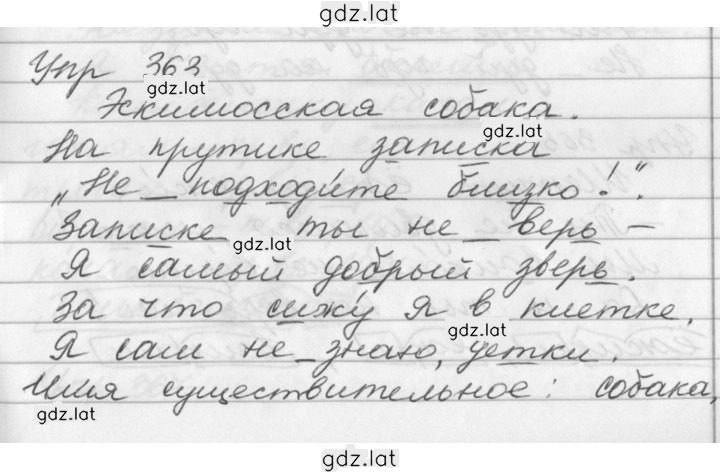 gdz.lat
Упр 363
gdz.lat
Эскимосская собака.
gdz.lat
На прутике записка
„Не подходите близко!".
Записке ты не верь –
gdz.lat
Я самый добрый зверь.
За что сижу я в клетке,
gdz.lat
Я сам не знаю, детки.
Имя существительное: собака,
gdz.lat
gdz.lat